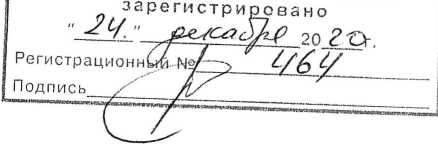 зарегистрировано
"24." декабря 2020г.
Регистрационный № 464
Подпись